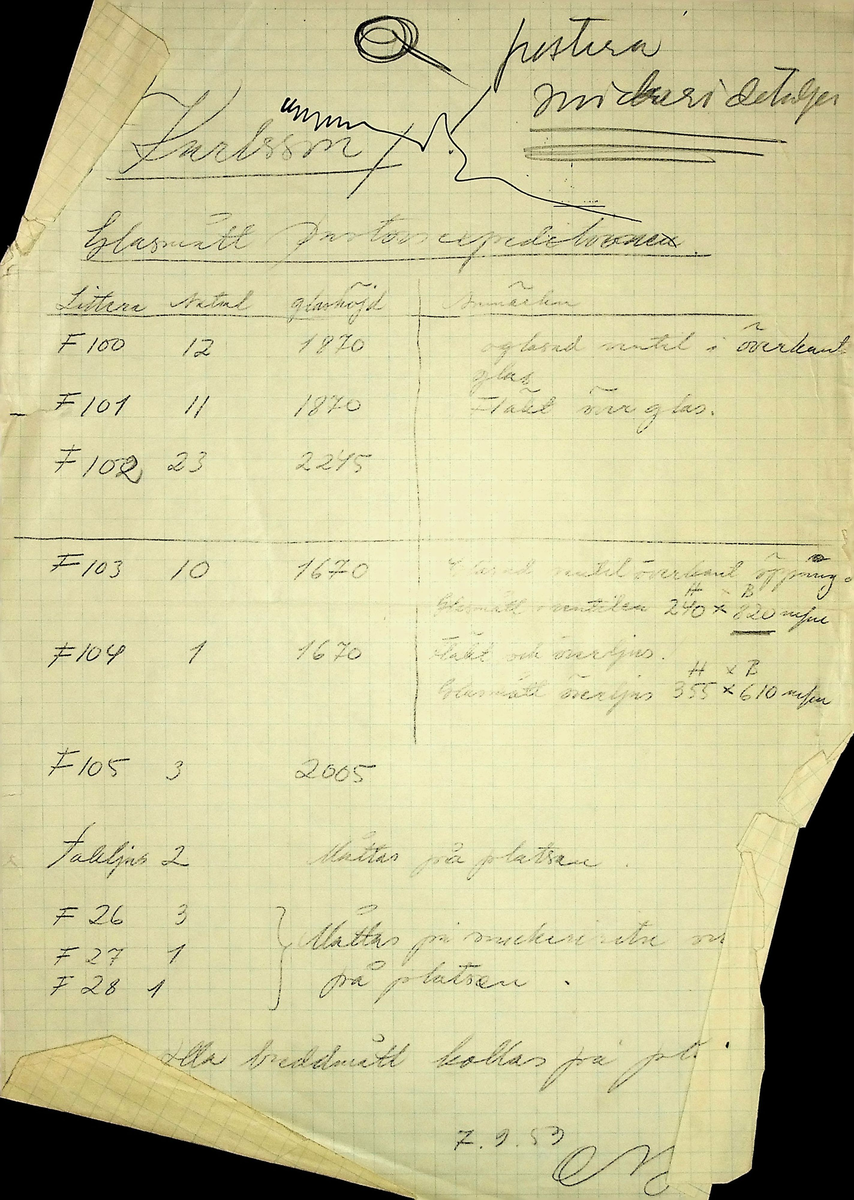 postera
snickeridetaljer
Karlsson
Glasmått pastorsexpeditionen.
Littera Antal glashöjd Anmärkn
F 100 12 1870 oglasad ventil i överkant
glas
F 101 11 1870 Fläkt över glas.
F 102 23 2245
F 103 10 1670 ventil överkant öppning.
H × B
Glasmått ventilen 240 × 820 m/m
F 104 1 1670 Fläkt och överljus.
H × B
Glasmått överljus 355 × 610 m/m
F 105 3 2005
Takljus 2 Måttas på platsen.
F 26 3
Måttas på snickeri
F 27 1
F 28 1 på platsen.
Alla breddmått kollas på
7.9.53